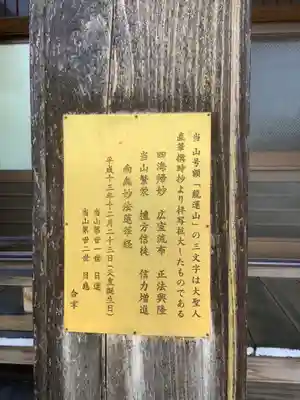 当山号額「龍蓮山」の三文字は大聖人
直筆撰時抄より拝写拡大したものである
四海帰妙 広宣流布 正法興隆
当山繁栄 檀方信徒 信力増進
南無妙法蓮華経
平成十三年十二月二十三日(天皇誕生日)
当山第廿一世 日還
当山第廿二世 日亀
合掌